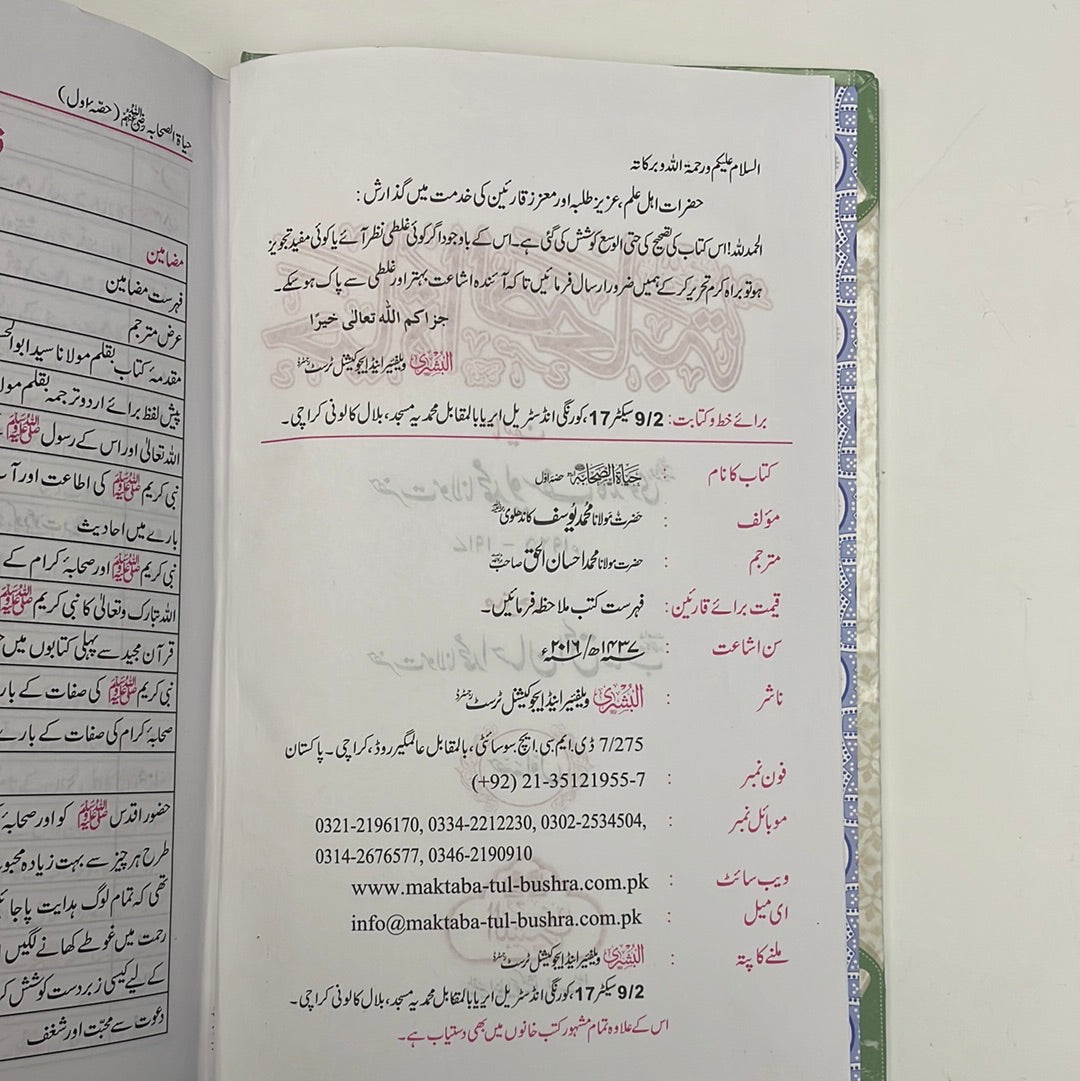 السلام علیکم ورحمۃ اللہ وبرکاتہ
حضرات اہل علم، عزیز طلبہ اور معزز قارئین کی خدمت میں گذارش :
الحمد للہ! اس کتاب کی تصحیح کی حتی الوسع کوشش کی گئی ہے۔ اس کے باوجود اگر کوئی غلطی نظر آئے یا کوئی مفید تجویز
ہو تو براہ کرم تحریر کر کے ہمیں ضرور ارسال فرمائیں تا کہ آئندہ اشاعت بہتر اور غلطی سے پاک ہو سکے۔
جزاکم اللہ تعالی خیرًا
البُشریٰ ویلفیئر اینڈ ایجوکیشنل ٹرسٹ رجسٹرڈ
برائے خط و کتابت: 9/2 سیکٹر 17، کورنگی انڈسٹریل ایریا بالمقابل محمدیہ مسجد، بلال کالونی کراچی۔
کتاب کا نام : حیاۃ الصحابہ حصہ اول
مؤلف : حضرت مولانا محمد یوسف کاندھلوی
مترجم : حضرت مولانا محمد احسان الحق صاحب
قیمت برائے قارئین : فہرست کتب ملاحظہ فرمائیں۔
سن اشاعت : ۱۴۳۷ھ/۲۰۱۶ء
ناشر : البُشریٰ ویلفیئر اینڈ ایجوکیشنل ٹرسٹ رجسٹرڈ
7/275 ڈی.ایم.سی.ایچ.سوسائٹی، بالمقابل عالمگیر روڈ، کراچی۔ پاکستان
فون نمبر : (+92) 21-35121955-7
موبائل نمبر : 0321-2196170, 0334-2212230, 0302-2534504,
0314-2676577, 0346-2190910
ویب سائٹ : www.maktaba-tul-bushra.com.pk
ای میل : info@maktaba-tul-bushra.com.pk
ملنے کا پتہ : البُشریٰ ویلفیئر اینڈ ایجوکیشنل ٹرسٹ رجسٹرڈ
9/2 سیکٹر 17، کورنگی انڈسٹریل ایریا بالمقابل محمدیہ مسجد، بلال کالونی کراچی۔
اس کے علاوہ تمام مشہور کتب خانوں میں بھی دستیاب ہے۔
حیاۃ الصحابہ (حصہ اول)
مضامین
فہرست مضامین
عرض مترجم
مقدمۂ کتاب بقلم مولانا سید ابوالحس
پیش لفظ برائے اردو ترجمہ بقلم مول
اللہ تعالیٰ اور اس کے رسول ﷺ
نبی کریم ﷺ کی اطاعت اور آ
بارے میں احادیث
نبی کریم ﷺ اور صحابۂ کرام کے
اللہ تبارک وتعالیٰ کا نبی کریم ﷺ
قرآن مجید سے پہلی کتابوں میں
نبی کریم ﷺ کی صفات کے بار
صحابۂ کرام کی صفات کے بارے
حضور اقدس ﷺ کو اور صحابۂ
طرح ہر چیز سے بہت زیادہ محبو
تھی کہ تمام لوگ ہدایت پا جائ
رحمت میں غوطے کھانے لگیں ا
کے لیے کیسی زبردست کوشش کر
دعوت سے محبت اور شغف